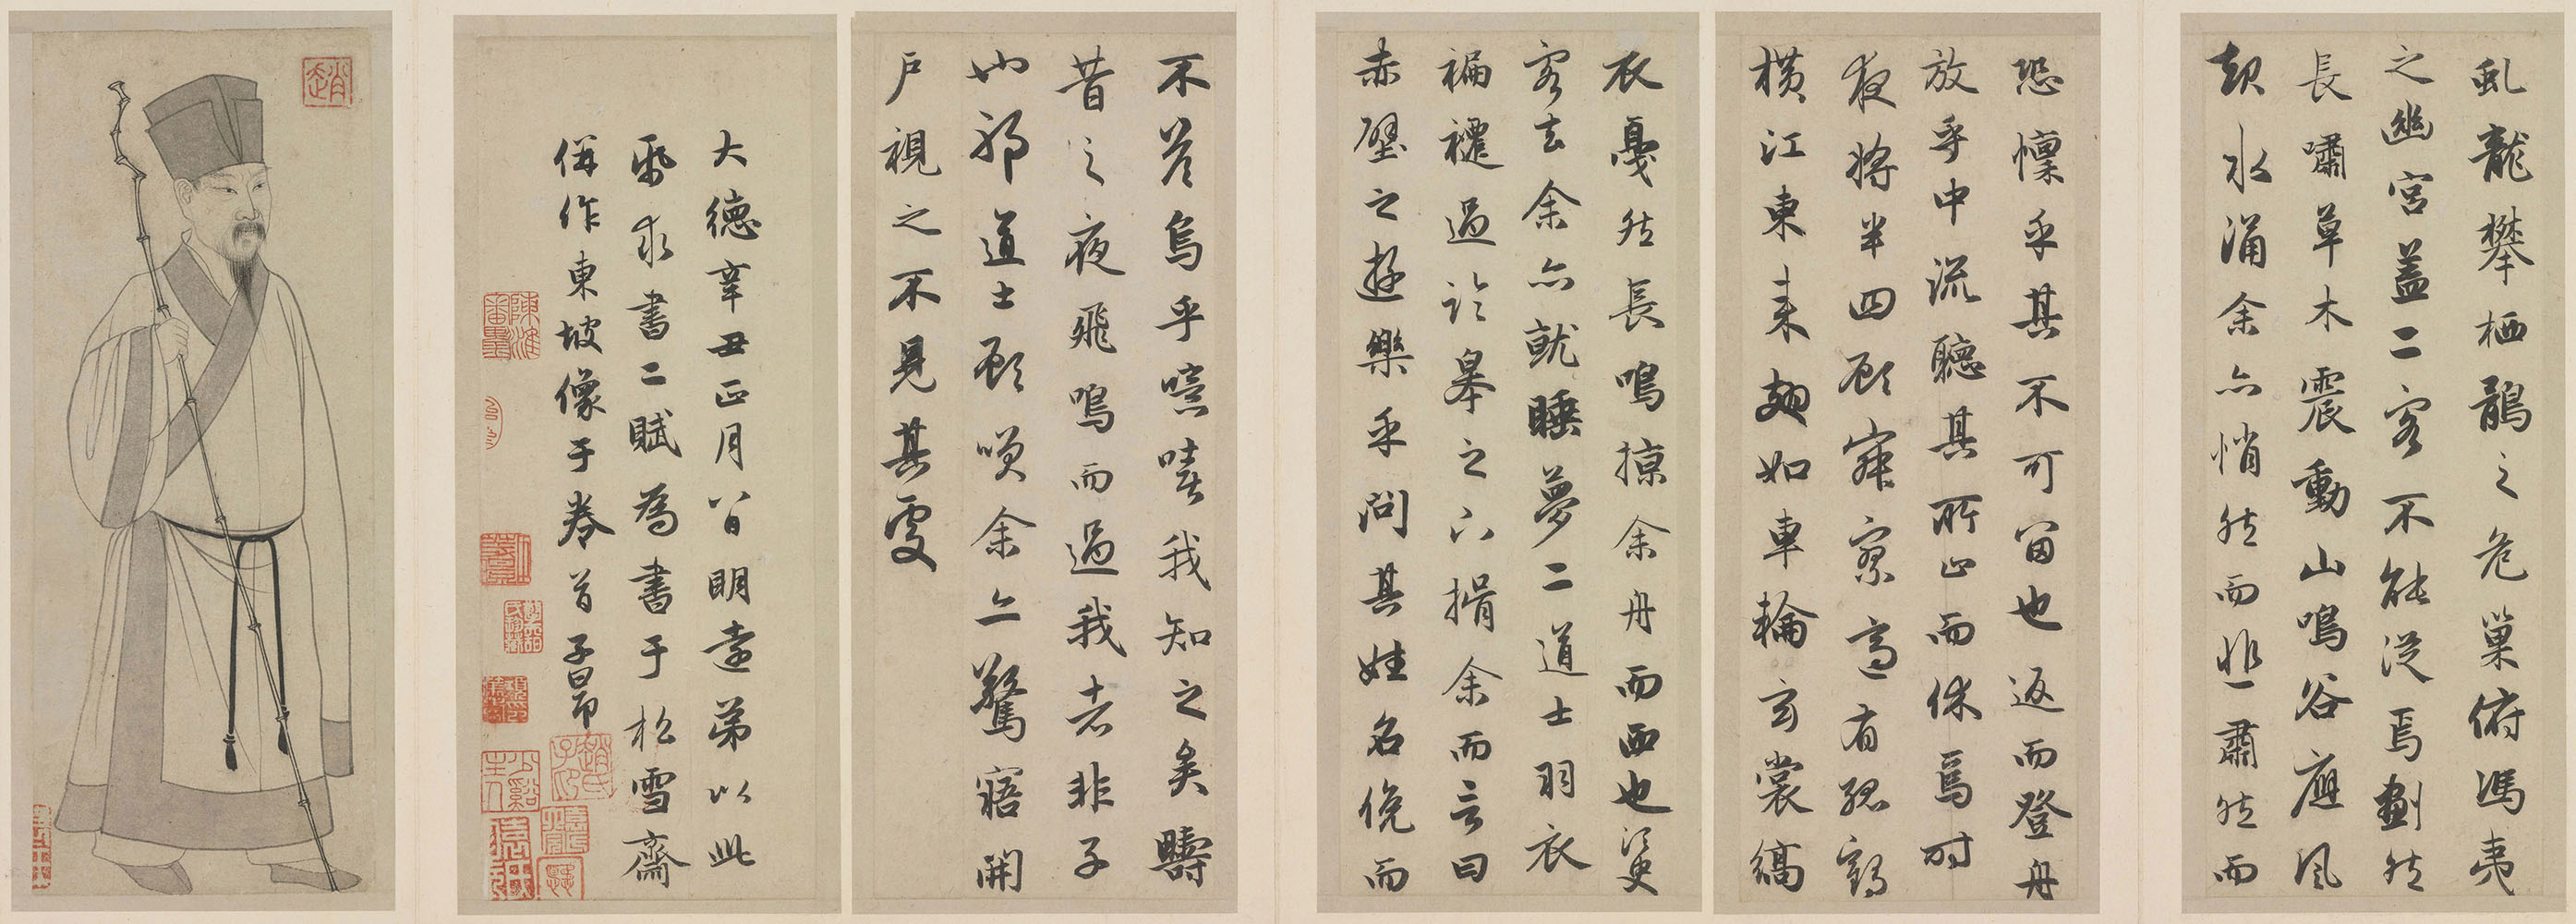 虬龍攀栖鶻之危巢俯馮夷
之幽宮盖二客不能從焉劃然
長嘯草木震動山鳴谷應風
起水涌余亦悄然而悲肅然而
恐懍乎其不可留也返而登舟
放乎中流聽其所止而休焉時
夜將半四顧寂寥適有孤鶴
橫江東来翅如車輪玄裳縞
衣戛然長鳴掠余舟而西也須臾
客去余亦就睡夢二道士羽衣
褊襹過臨皋之下揖余而言曰
赤壁之遊樂乎問其姓名俛而
不答烏乎噫嘻我知之矣疇
昔之夜飛鳴而過我者非子
也邪道士顧笑余亦驚寤開
戶視之不見其處
大德辛丑正月八日明遠弟以此
紙求書二賦為書于松雪齋
併作東坡像于卷首子昂
趙
趙氏子昂